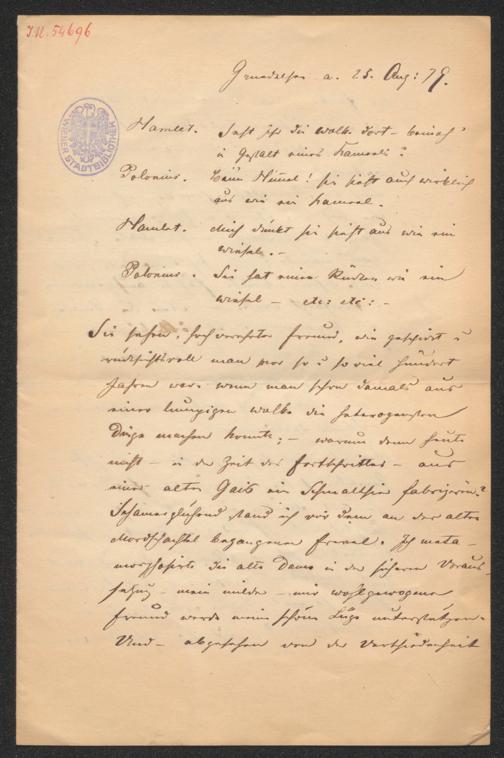 J.N. 54696
WIENER STADTBIBLIOTHEK
a. 25. Aug: 79.
Hamlet. Seht ihr die Wolke dort – beinah'
in Gestalt eines Kameels?
Polonius. Beim Himmel! sie sieht auch wirklich
aus wie ein Kameel.
Hamlet. Mich dünkt sie sieht aus wie ein
Wiesel. –
Polonius. Sie hat einen Rücken wie ein
Wiesel – etc: etc: –
Sie sehen, hochverehrter Freund, wie gescheidt u
rücksichtsvoll man vor so u so viel hundert
Jahren war, wenn man schon damals aus
einer lumpigen Wolke die heterogensten
Dinge machen konnte; – warum denn heute
nicht – in der Zeit des Fortschrittes – aus
einer alten Gais ein Schmalthier fabriziren?
Schamerglühend stand ich vor dem an der alten
begangenen Frevel. Ich meta-
morphosirte die alte Dame in der sichern Voraus-
setzung – mein milder – mir wohlgewogener
Freund werde meine schöne Lüge unterstützen.
Und – abgesehen von der Verschiedenheit